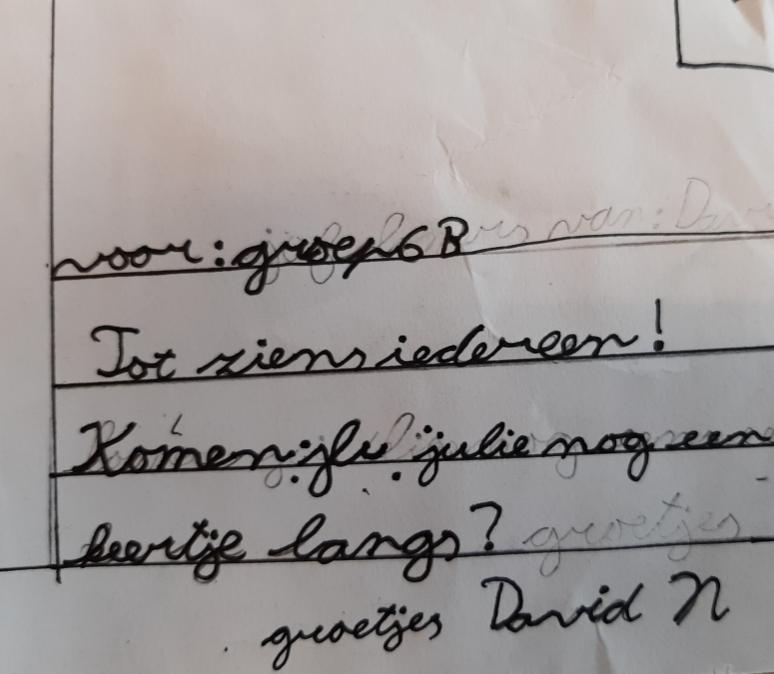 voor: groep 6 B
Tot ziens iedereen!
Komen julie nog een
keertje langs?
groetjes
groetjes David N